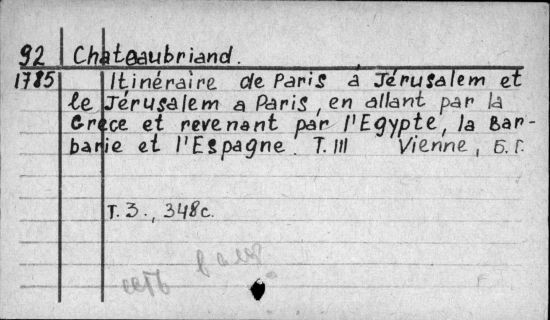 92 Chateaubriand.
1785 Itinéraire de Paris á Jérusalem et
le Jérusalem a Paris, en allant par la
Grèce et revenant par l'Egypte, la Bar-
barie et l'Espagne. T. III Vienne, Б.Г.
Т. 3., 348с.
есть